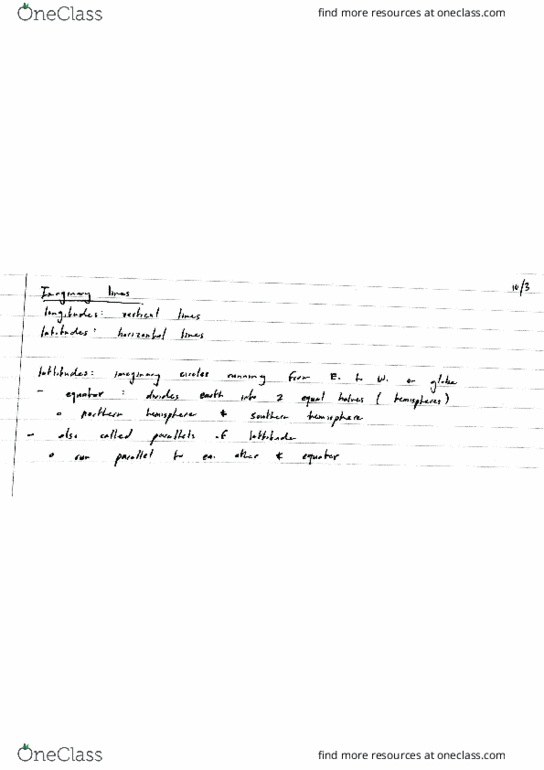 OneClass
find more resources at oneclass.com
10/3
Imaginary lines
longitudes: vertical lines
latitudes: horizontal lines
latitudes: imaginary circles running from E. to W. on globe
- equator: divides earth into 2 equal halves (hemispheres)
o northern hemisphere & southern hemisphere
- also called parallels of latitude
o run parallel to ea. other & equator
OneClass
find more resources at oneclass.com